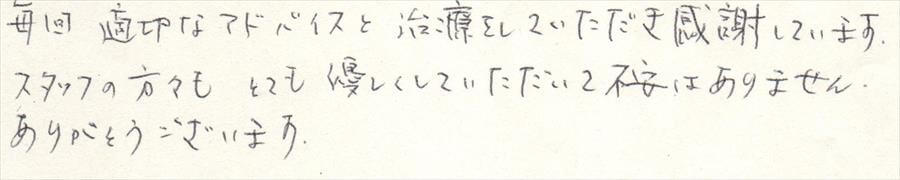 毎回 適切なアドバイスと 治療をしていただき感謝しています.
スタッフの方々も とても 優しくしていただいて不安はありません.
ありがとうございます.